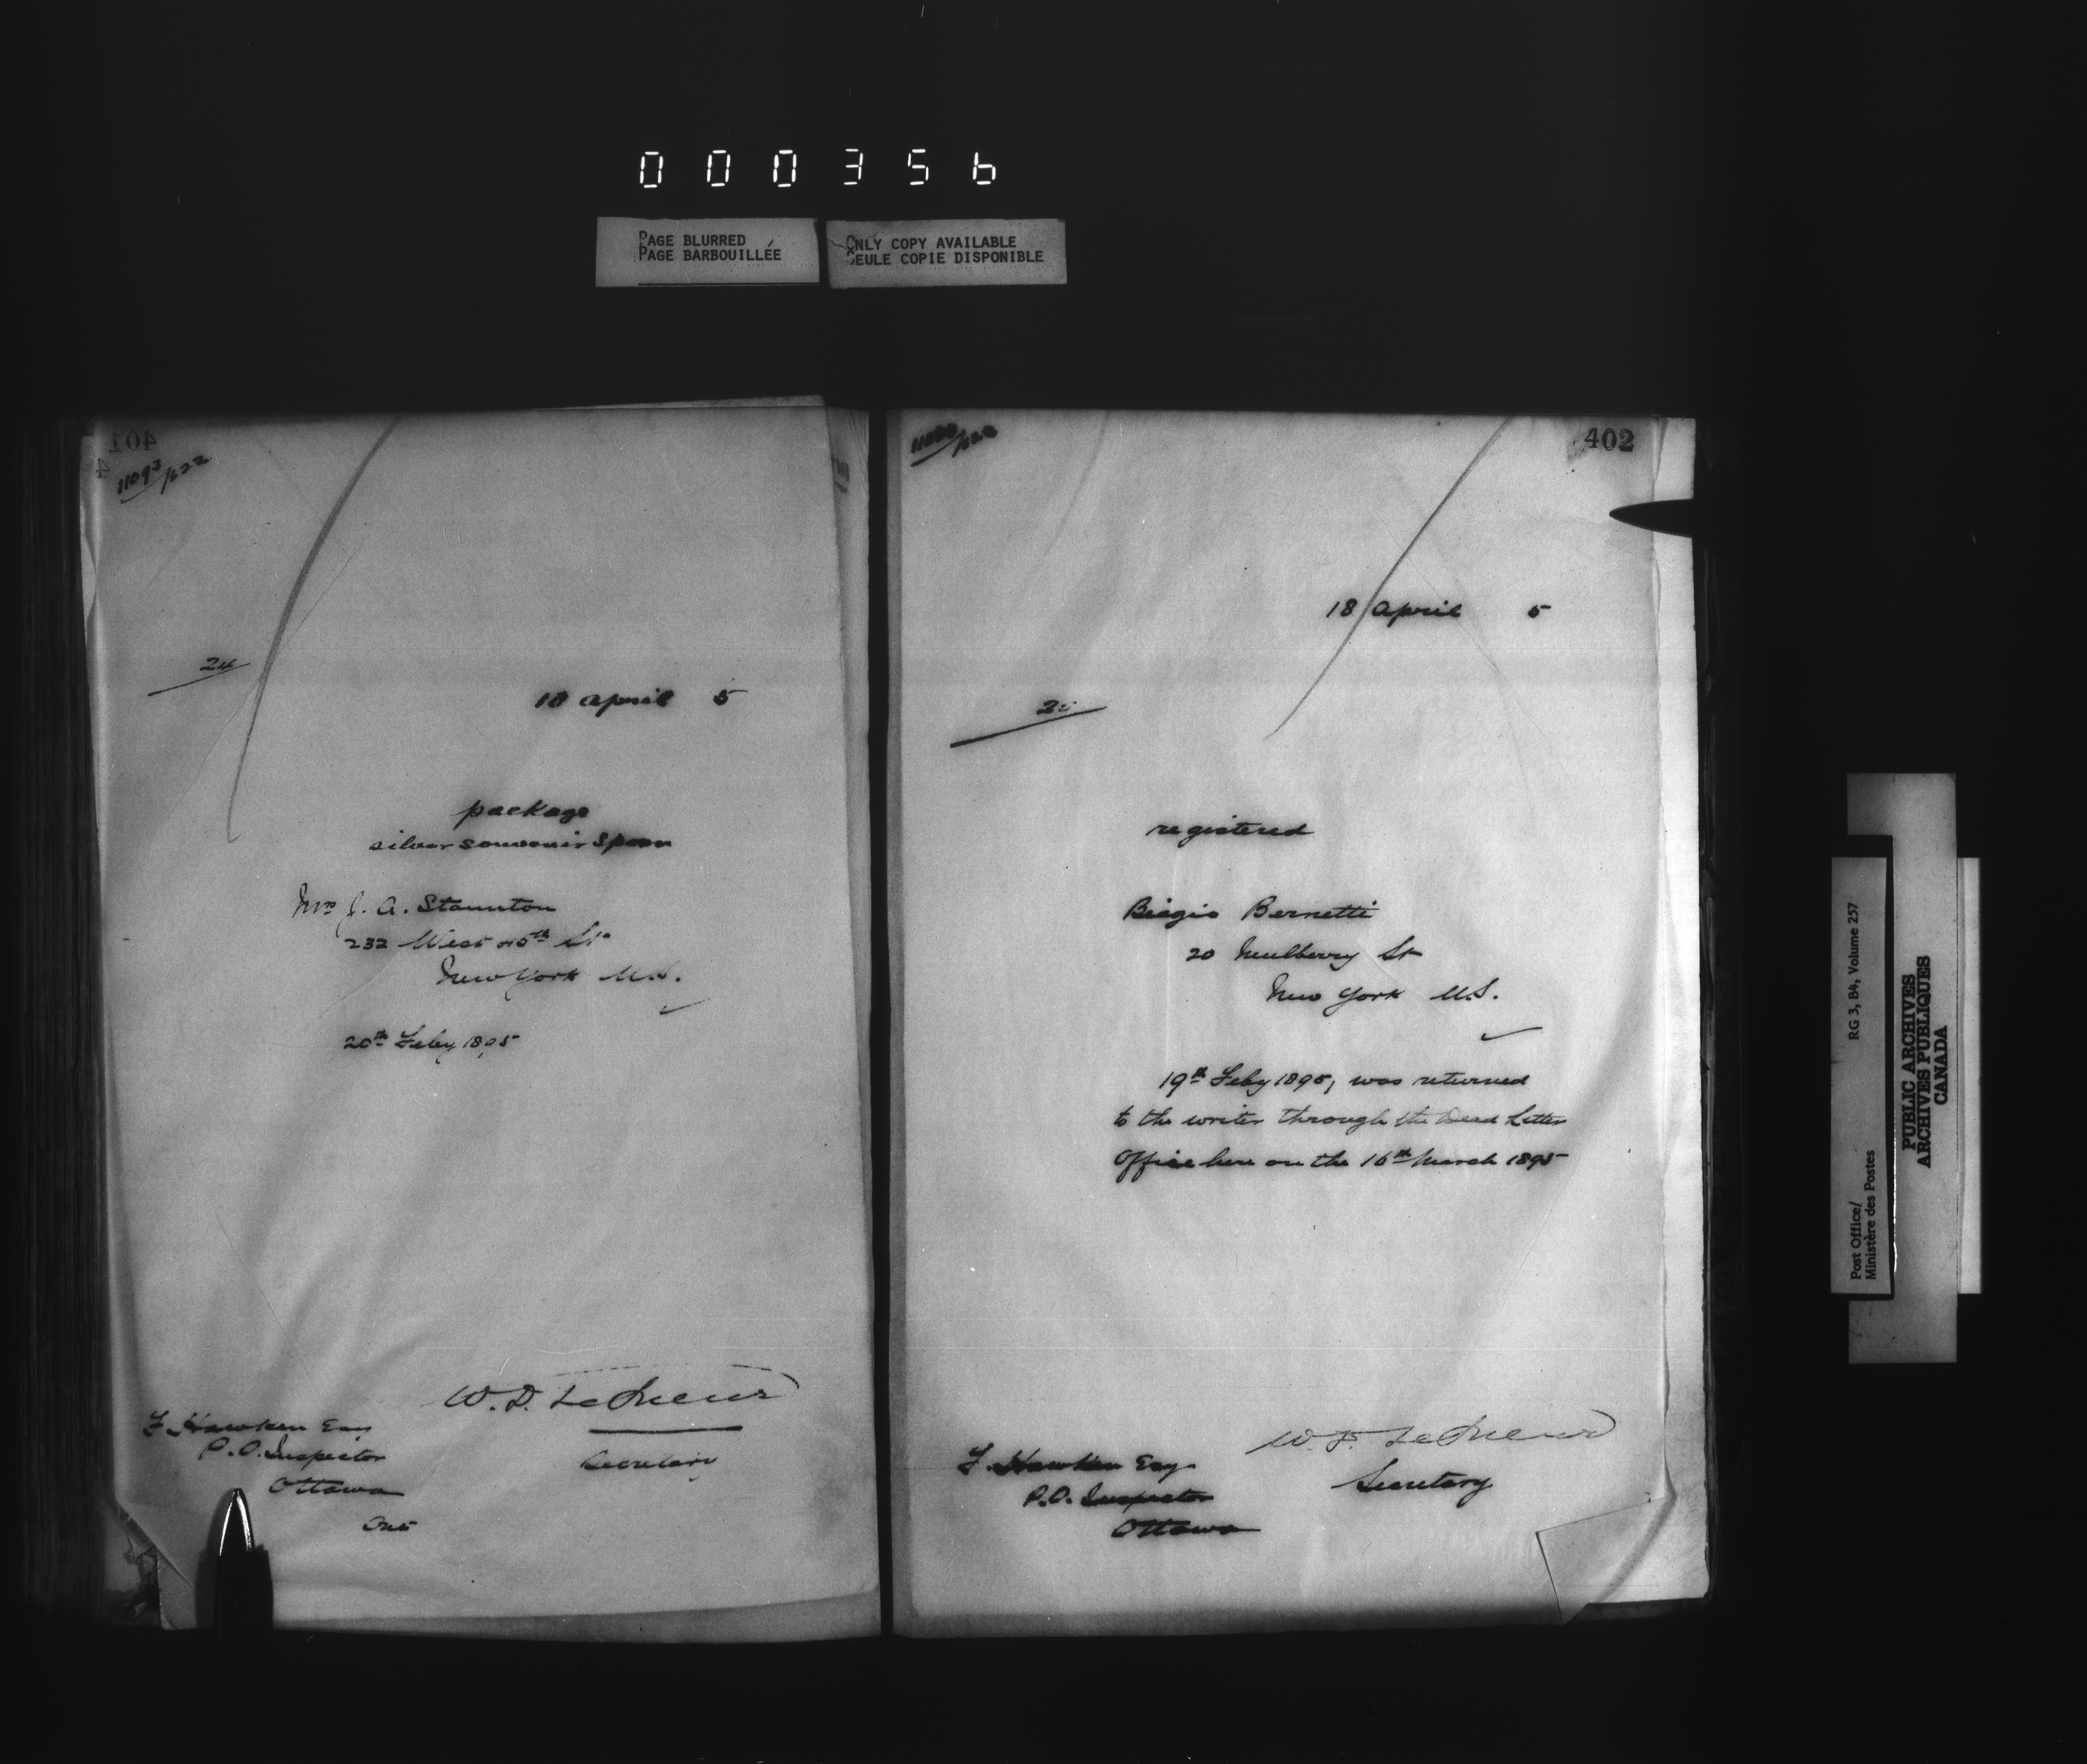 000356
PAGE BLURRED
PAGE BARBOUILLÉE
ONLY COPY AVAILABLE
SEULE COPIE DISPONIBLE
401
11093/622
24
18 April 5
package
silver souvenir Spoon
Mrs J. A. Staunton
232 West 45th St
New York U.S.
20th Feby 1895
W. D. LeSueur
Secretary
F Hawken Esq
P.O. Inspector
Ottawa
Ont
402
18 April 5
registered
Biagio Bernetti
20 Mulberry St
New York U.S.
19th Feby 1895, was returned
to the writer through the Dead Letter
Office here on the 16th March 1895
W. D. LeSueur
Secretary
F. Hawken Esq
P.O. Inspector
Ottawa
Post Office/
Ministère des Postes
RG 3, B4, Volume 257
PUBLIC ARCHIVES
ARCHIVES PUBLIQUES
CANADA